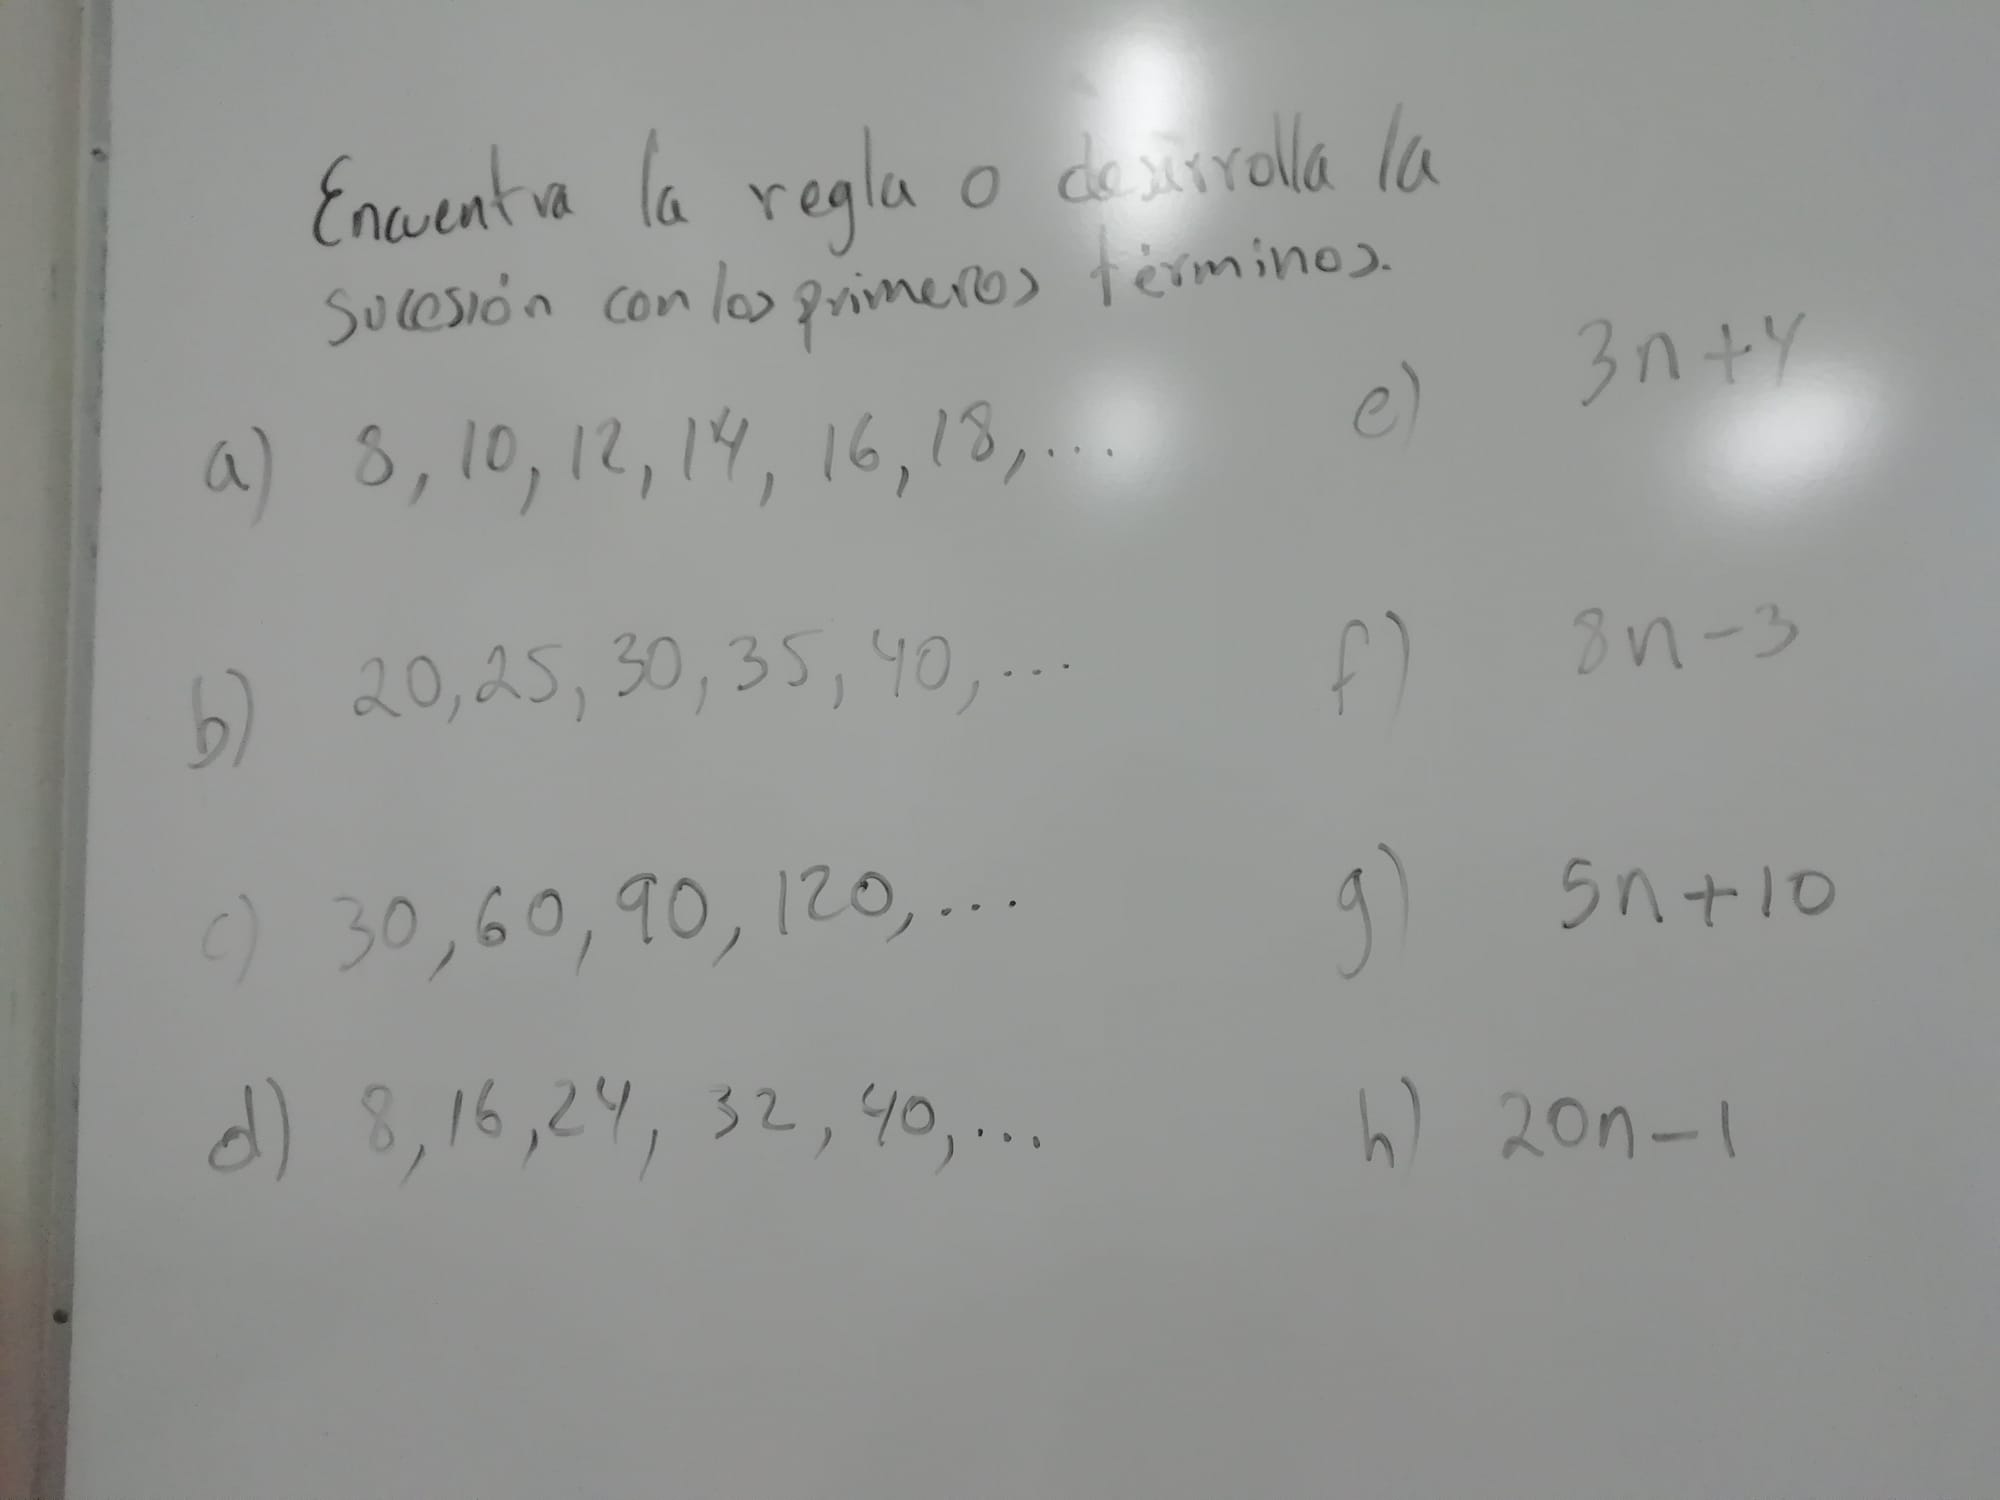 Encuentra la regla o desarrolla la
sucesión con los primeros términos.
a) 8, 10, 12, 14, 16, 18, ...
b) 20, 25, 30, 35, 40, ...
c) 30, 60, 90, 120, ...
d) 8, 16, 24, 32, 40, ...
e) 3n+4
f) 8n-3
g) 5n+10
h) 20n-1